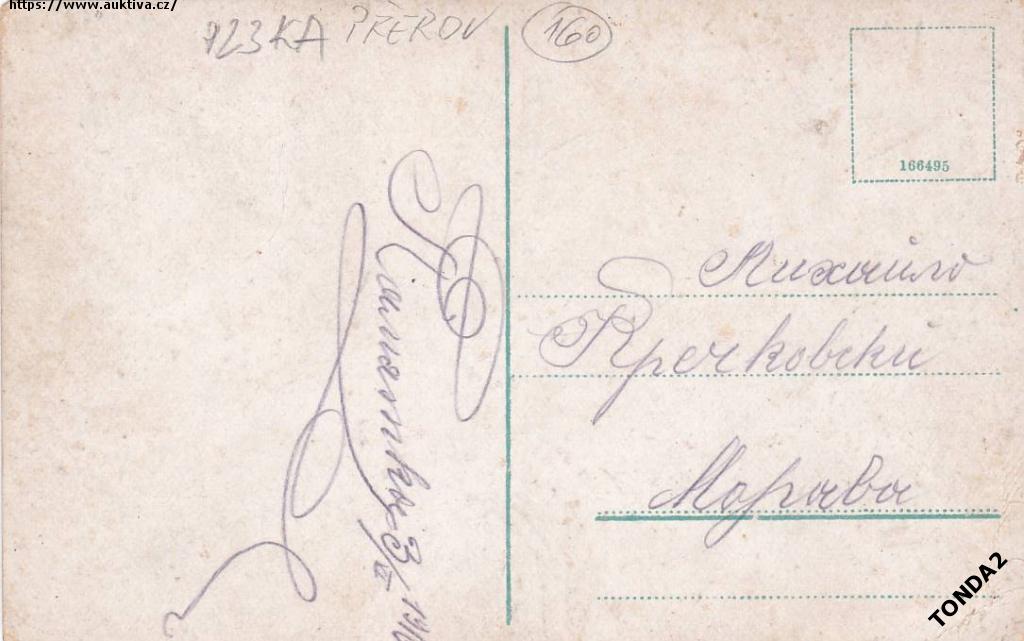 https://www.auktiva.cz/
123KA PŘEROV 160
166495
Михайло
Кречковски
Морава
Памятка 3/III 191
TONDA2